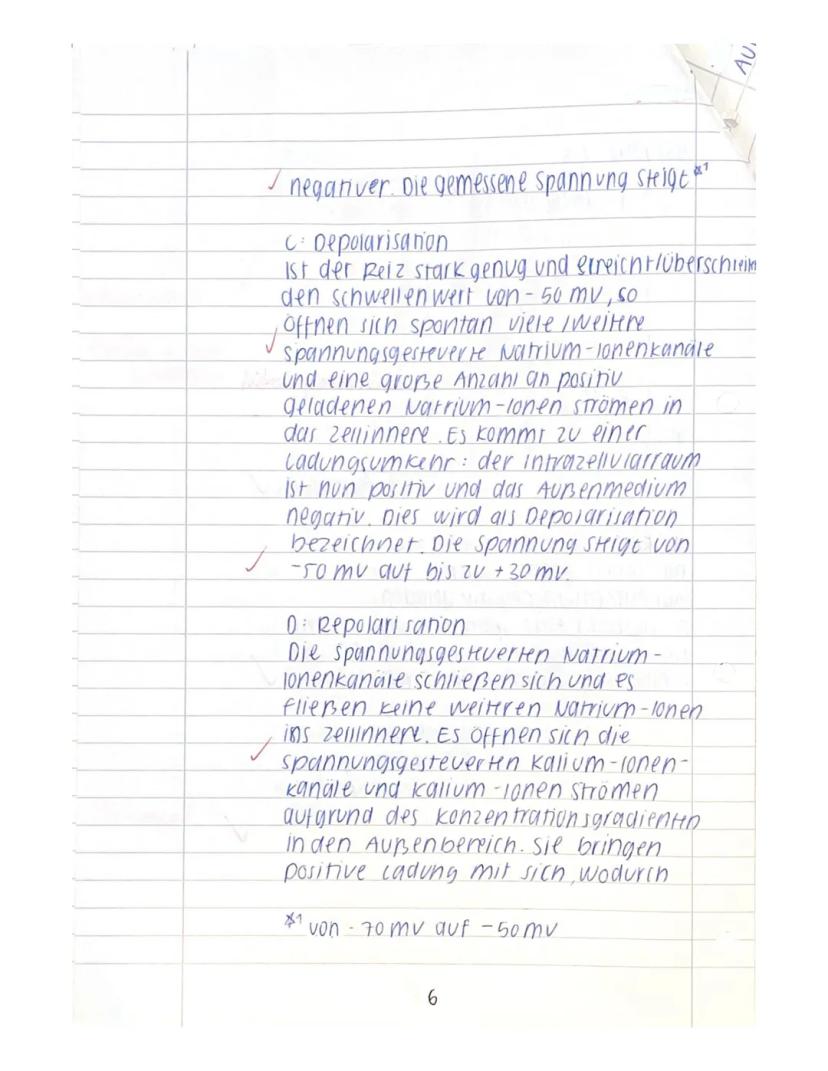 AU
negativer. Die gemessene Spannung steigt *1
C: Depolarisation
Ist der Reiz stark genug und erreicht/überschreit
den Schwellenwert von -50 mV, so
öffnen sich spontan viele/weitere
spannungsgesteuerte Natrium-Ionenkanäle
und eine große Anzahl an positiv
geladenen Natrium-Ionen strömen in
das Zellinnere. Es kommt zu einer
Ladungsumkehr: der Intrazellularraum
ist nun positiv und das Außenmedium
negativ. Dies wird als Depolarisation
bezeichnet. Die Spannung steigt von
-50 mV auf bis zu +30 mV.
D: Repolarisation
Die spannungsgesteuerten Natrium-
Ionenkanäle schließen sich und es
fließen keine weiteren Natrium-Ionen
ins Zellinnere. Es öffnen sich die
spannungsgesteuerten Kalium-Ionen-
kanäle und Kalium-Ionen strömen
aufgrund des Konzentrationsgradienten
in den Außenbereich. Sie bringen
positive Ladung mit sich, wodurch
*1 von -70 mV auf -50 mV
6